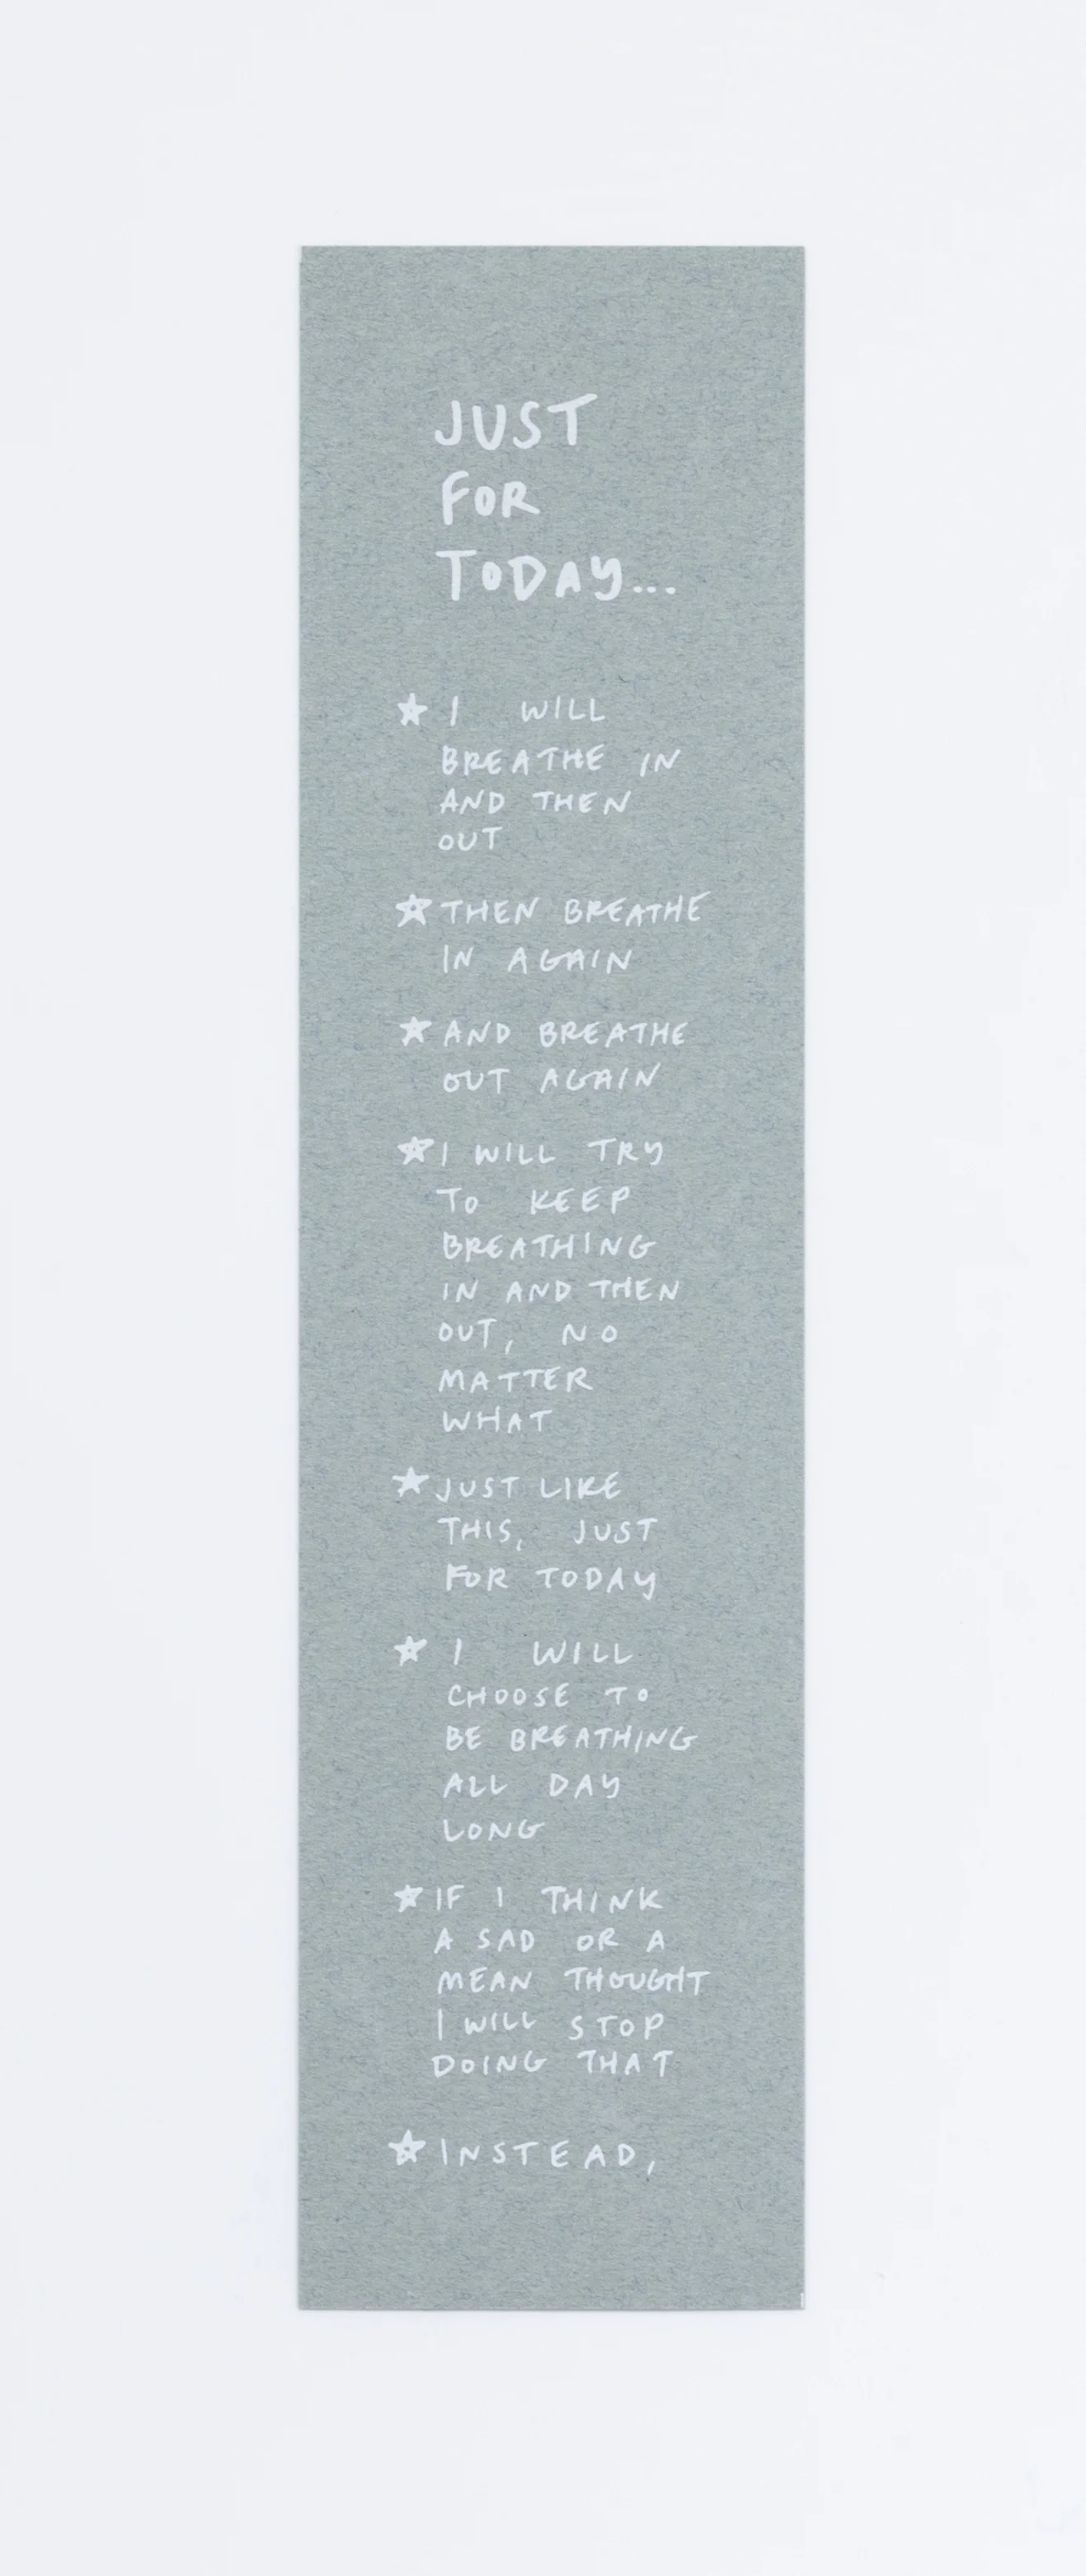 JUST
FOR
TODAY...
★ I WILL
BREATHE IN
AND THEN
OUT
★ THEN BREATHE
IN AGAIN
★ AND BREATHE
OUT AGAIN
★ I WILL TRY
TO KEEP
BREATHING
IN AND THEN
OUT, NO
MATTER
WHAT
★ JUST LIKE
THIS, JUST
FOR TODAY
★ I WILL
CHOOSE TO
BE BREATHING
ALL DAY
LONG
★ IF I THINK
A SAD OR A
MEAN THOUGHT
I WILL STOP
DOING THAT
★ INSTEAD,